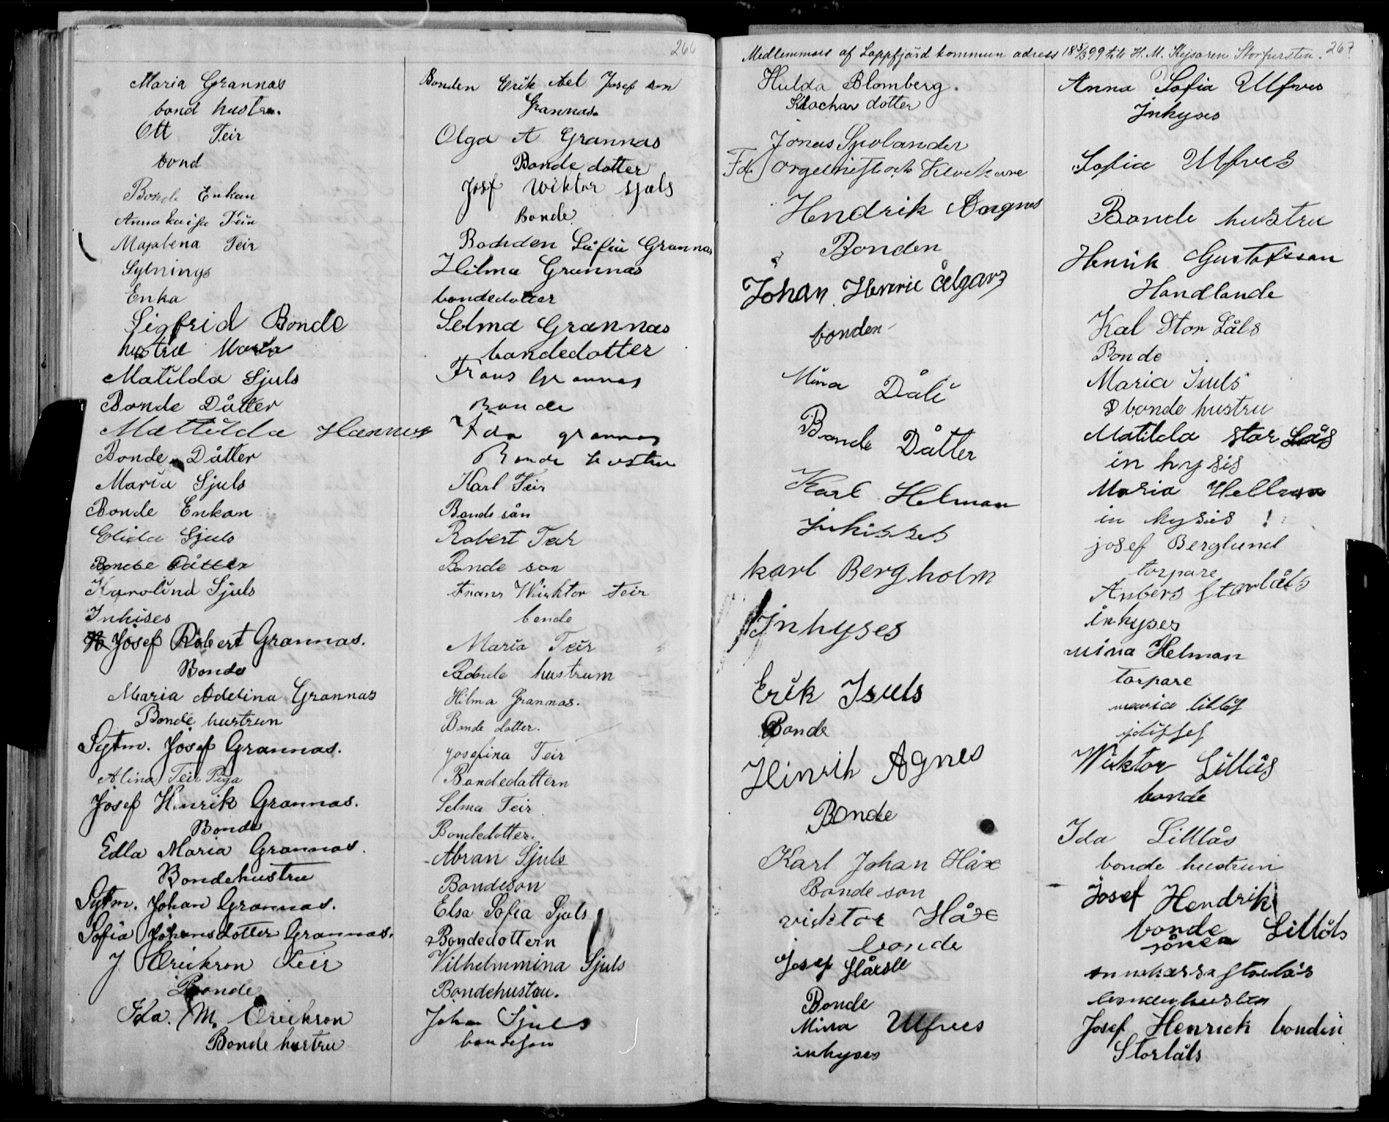 266
Maria Grannas
bond hustru.
Ott Teir
bond
Bonde Enkan
Anna Kaisa Teir
Majalena Teir
Sytnings
Enka
Sigfrid Bonde
hustru Maria
Matilda Sjuls
Bonde Dåtter
Mattilda Hannus
Bonde Dåtter
Maria Sjuls
Bonde Enkan
Elida Sjuls
Bonde Dåtter
Karolina Sjuls
Inhises
Josef Robert Grannas.
Bonde
Maria Adelina Grannas
Bonde hustrun
Sytm. Josef Grannas.
Alina Teir Piga
Josef Henrik Grannas.
Bonde
Edla Maria Grannas.
Bondehustru
Sytm. Johan Grannas.
Sofia Johansdotter Grannas.
J Erikson Teir
Bonde
Ida. M. Erikson
Bonde hustru
Bonden Erik Axl Josef son
Grannas.
Olga A Grannas
Bonde dotter
Josf Wiktor Sjuls
Bonde
Bonden Sofia Grannas
Hilma Grannas
bondedotter
Selma Grannas
bondedotter
Frans Grannas
Bonde
Ida grannas
Bonde hustru
Karl Teir
Bonde sån
Robert Teir
Bonde son
Frans Wicktor Teir
bonde
Maria Teir
Bonde hustrum
Hilma Grannas.
Bonde dotter.
Josefina Teir
Bondedottern
Selma Teir
Bondedotter.
Abran Sjuls
Bondeson
Elsa Sofia Sjuls
Bondedottern
Vilhelmmina Sjuls
Bondehustru.
Johan Sjuls
bondeson
Medlemmars af Lappfjärd kommun adress 18 5/3 99 till H. M. Kejsaren Storfursten. 267
Hulda Blomberg.
Klockar dotter
Jonas Spolander
Fd. Orgelnist och Klockare
Hendrik Aagnes
Bonden
Johan Henric Ålgars
bonden
Mina Dåli
Bonde Dåtter
Karl Helman
Inhisses
Karl Bergholm
Inhyses
Erik Isuls
Bonde
Hinrik Agnes
Bonde
Karl Johan Håxe
Bonde son
Viktor Håxe
bonde
Josef Håxell
Bonde
Mina Ulfves
inhyses
Anna Sofia Ulfves
Inhyses
Sofia Ulfves
Bonde hustru
Henrik Gustafsson
Handlande
Kal Stor Låls
Bonde
Maria Isuls
bonde hustru
Matilda stor Lås
in hysis
Maria Hellman
in hyses !
josef Berglund
torpare
Anders storlåls
inhyses
Mina Helman
torpare
maria lillås
Wiktor Lillås
bonde
Ida Lilllås
bonde hustrun
Josef Hendrik
bonde Lillåls
sånen
bonden hustru
Josef Henrick bonden
Storlåls